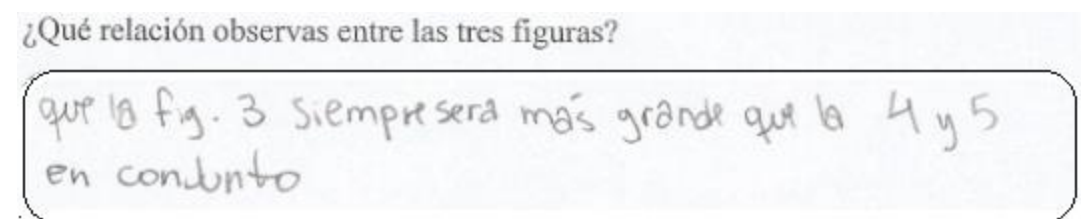 ¿Qué relación observas entre las tres figuras?
que la fig. 3 siempre sera más grande que la 4 y 5
en conjunto